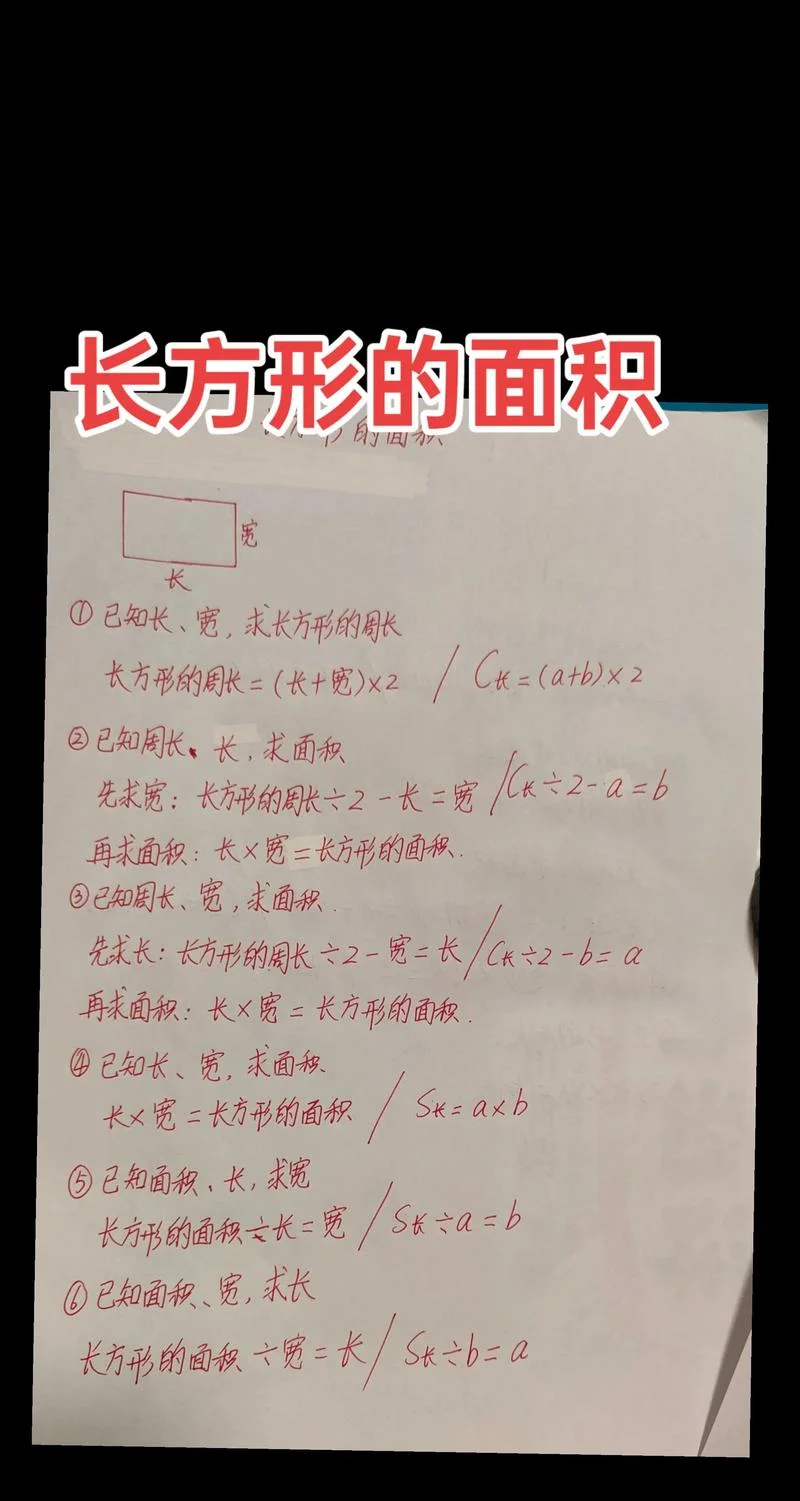 长方形的面积
长方形的面积
宽
长
①已知长、宽,求长方形的周长
长方形的周长=(长+宽)×2 / C长=(a+b)×2
②已知周长、长,求面积
先求宽:长方形的周长÷2-长=宽 / C长÷2-a=b
再求面积:长×宽=长方形的面积.
③已知周长、宽,求面积.
先求长:长方形的周长÷2-宽=长 / C长÷2-b=a
再求面积:长×宽=长方形的面积.
④已知长、宽,求面积.
长×宽=长方形的面积 / S长=a×b
⑤已知面积、长,求宽
长方形的面积÷长=宽 / S长÷a=b
⑥已知面积、宽,求长
长方形的面积÷宽=长 / S长÷b=a